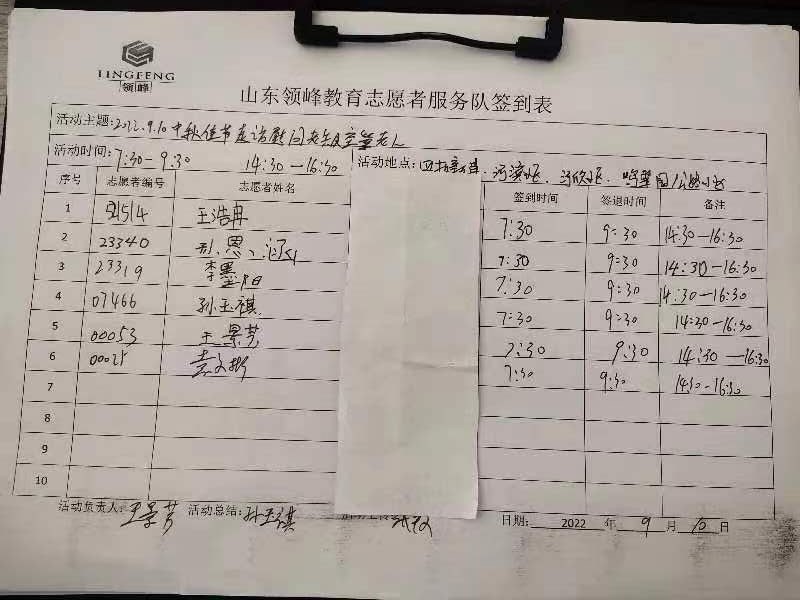 LINGFENG
领峰
山东领峰教育志愿者服务队签到表
活动主题:2022.9.10中秋佳节走访慰问老级空巢老人
活动时间:7:30-9:30 14:30-16:30 活动地点:
序号 志愿者编号 志愿者姓名 签到时间 签退时间 备注
1 王浩冉 7:30 9:30 14:30-16:30
2 23340 7:30 9:30 14:30-16:30
3 23319 李墨阳 7:30 9:30 14:30-16:30
4 07466 孙玉祺 7:30 9:30 14:30-16:30
5 00053 王景芳 7:30 9:30 14:30-16:30
6 7:30 9:30 14:30-16:30
7
8
9
10
活动负责人:王景芳 活动总结:孙玉祺 日期: 2022 年 9 月 10 日